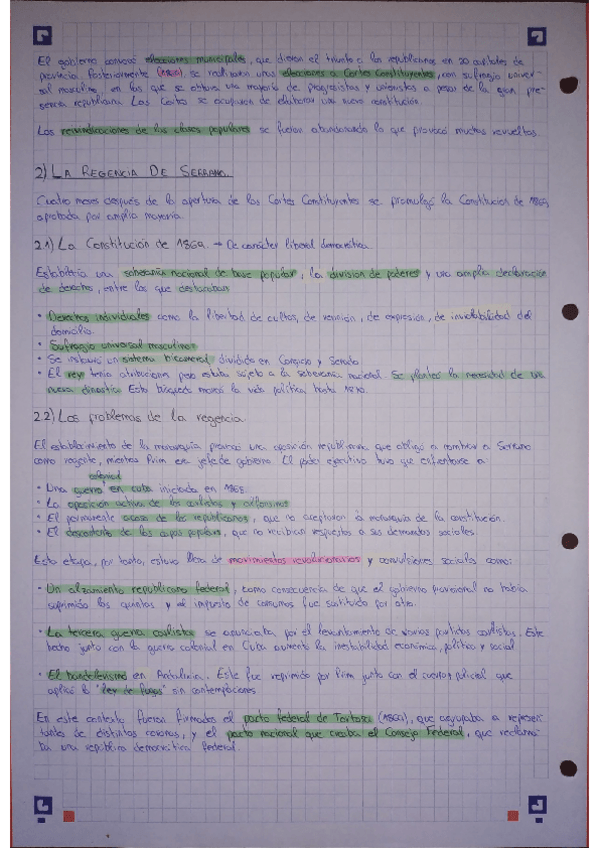 El gobierno convocó elecciones municipales, que dieron el triunfo a los republicanos en 20 capitales de
provincia. Posteriormente (1869), se realizaron unas elecciones a Cortes Constituyentes, con sufragio univer-
sal masculino, en las que se obtuvo una mayoría de progresistas y unionistas a pesar de la gran pre-
sencia republicana. Las Cortes se ocuparon de elaborar una nueva constitución.
Las reivindicaciones de las clases populares se fueron abandonando lo que provocó muchas revueltas.
2) LA REGENCIA DE SERRANO.
Cuatro meses después de la apertura de las Cortes Constituyentes se promulgó la Constitución de 1869,
aprobada por amplia mayoría.
2.1) La Constitución de 1869. → De carácter liberal democrática.
Establecía una soberanía nacional de base popular, la división de poderes y una amplia declaración
de derechos, entre los que destacaban
• Derechos individuales como la libertad de cultos, de reunión, de expresión, de inviolabilidad del
domicilio.
• Sufragio universal masculino
• Se instauró un sistema bicameral dividido en Congreso y Senado
• El rey tenía atribuciones pero estaba sujeto a la soberanía nacional. Se planteó la necesidad de una
nueva dinastía. Esta búsqueda marcó la vida política hasta 1870.
2.2) Los problemas de la regencia.
El establecimiento de la monarquía provocó una oposición republicana que obligó a nombrar a Serrano
como regente, mientras Prim era jefe de gobierno. El poder ejecutivo tuvo que enfrentarse a
colonial
• Una guerra en cuba iniciada en 1868.
• La oposición activa de los carlistas y alfonsinos
• El permanente acoso de los republicanos, que no aceptaron la monarquía de la constitución.
• El descontento de las capas populares, que no recibían respuestas a sus demandas sociales.
Esta etapa, por tanto, estuvo llena de movimientos revolucionarios y convulsiones sociales como:
• Un alzamiento republicano federal, como consecuencia de que el gobierno provisional no había
suprimido las quintas y el impuesto de consumos fue sustituido por otro.
• La tercera guerra carlista se anunciaba por el levantamiento de varias partidas carlistas. Este
hecho junto con la guerra colonial en Cuba aumentó la inestabilidad económica, política y social
• El bandolerismo en Andalucía. Este fue reprimido por Prim junto con el cuerpo policial que
aplicó la "ley de fugas" sin contemplaciones
En este contexto fueron firmados el pacto federal de Tortosa (1869), que agrupaba a represen-
tantes de distintas coronas, y el pacto nacional que creaba el Consejo Federal, que reclama-
ba una república democrática federal.